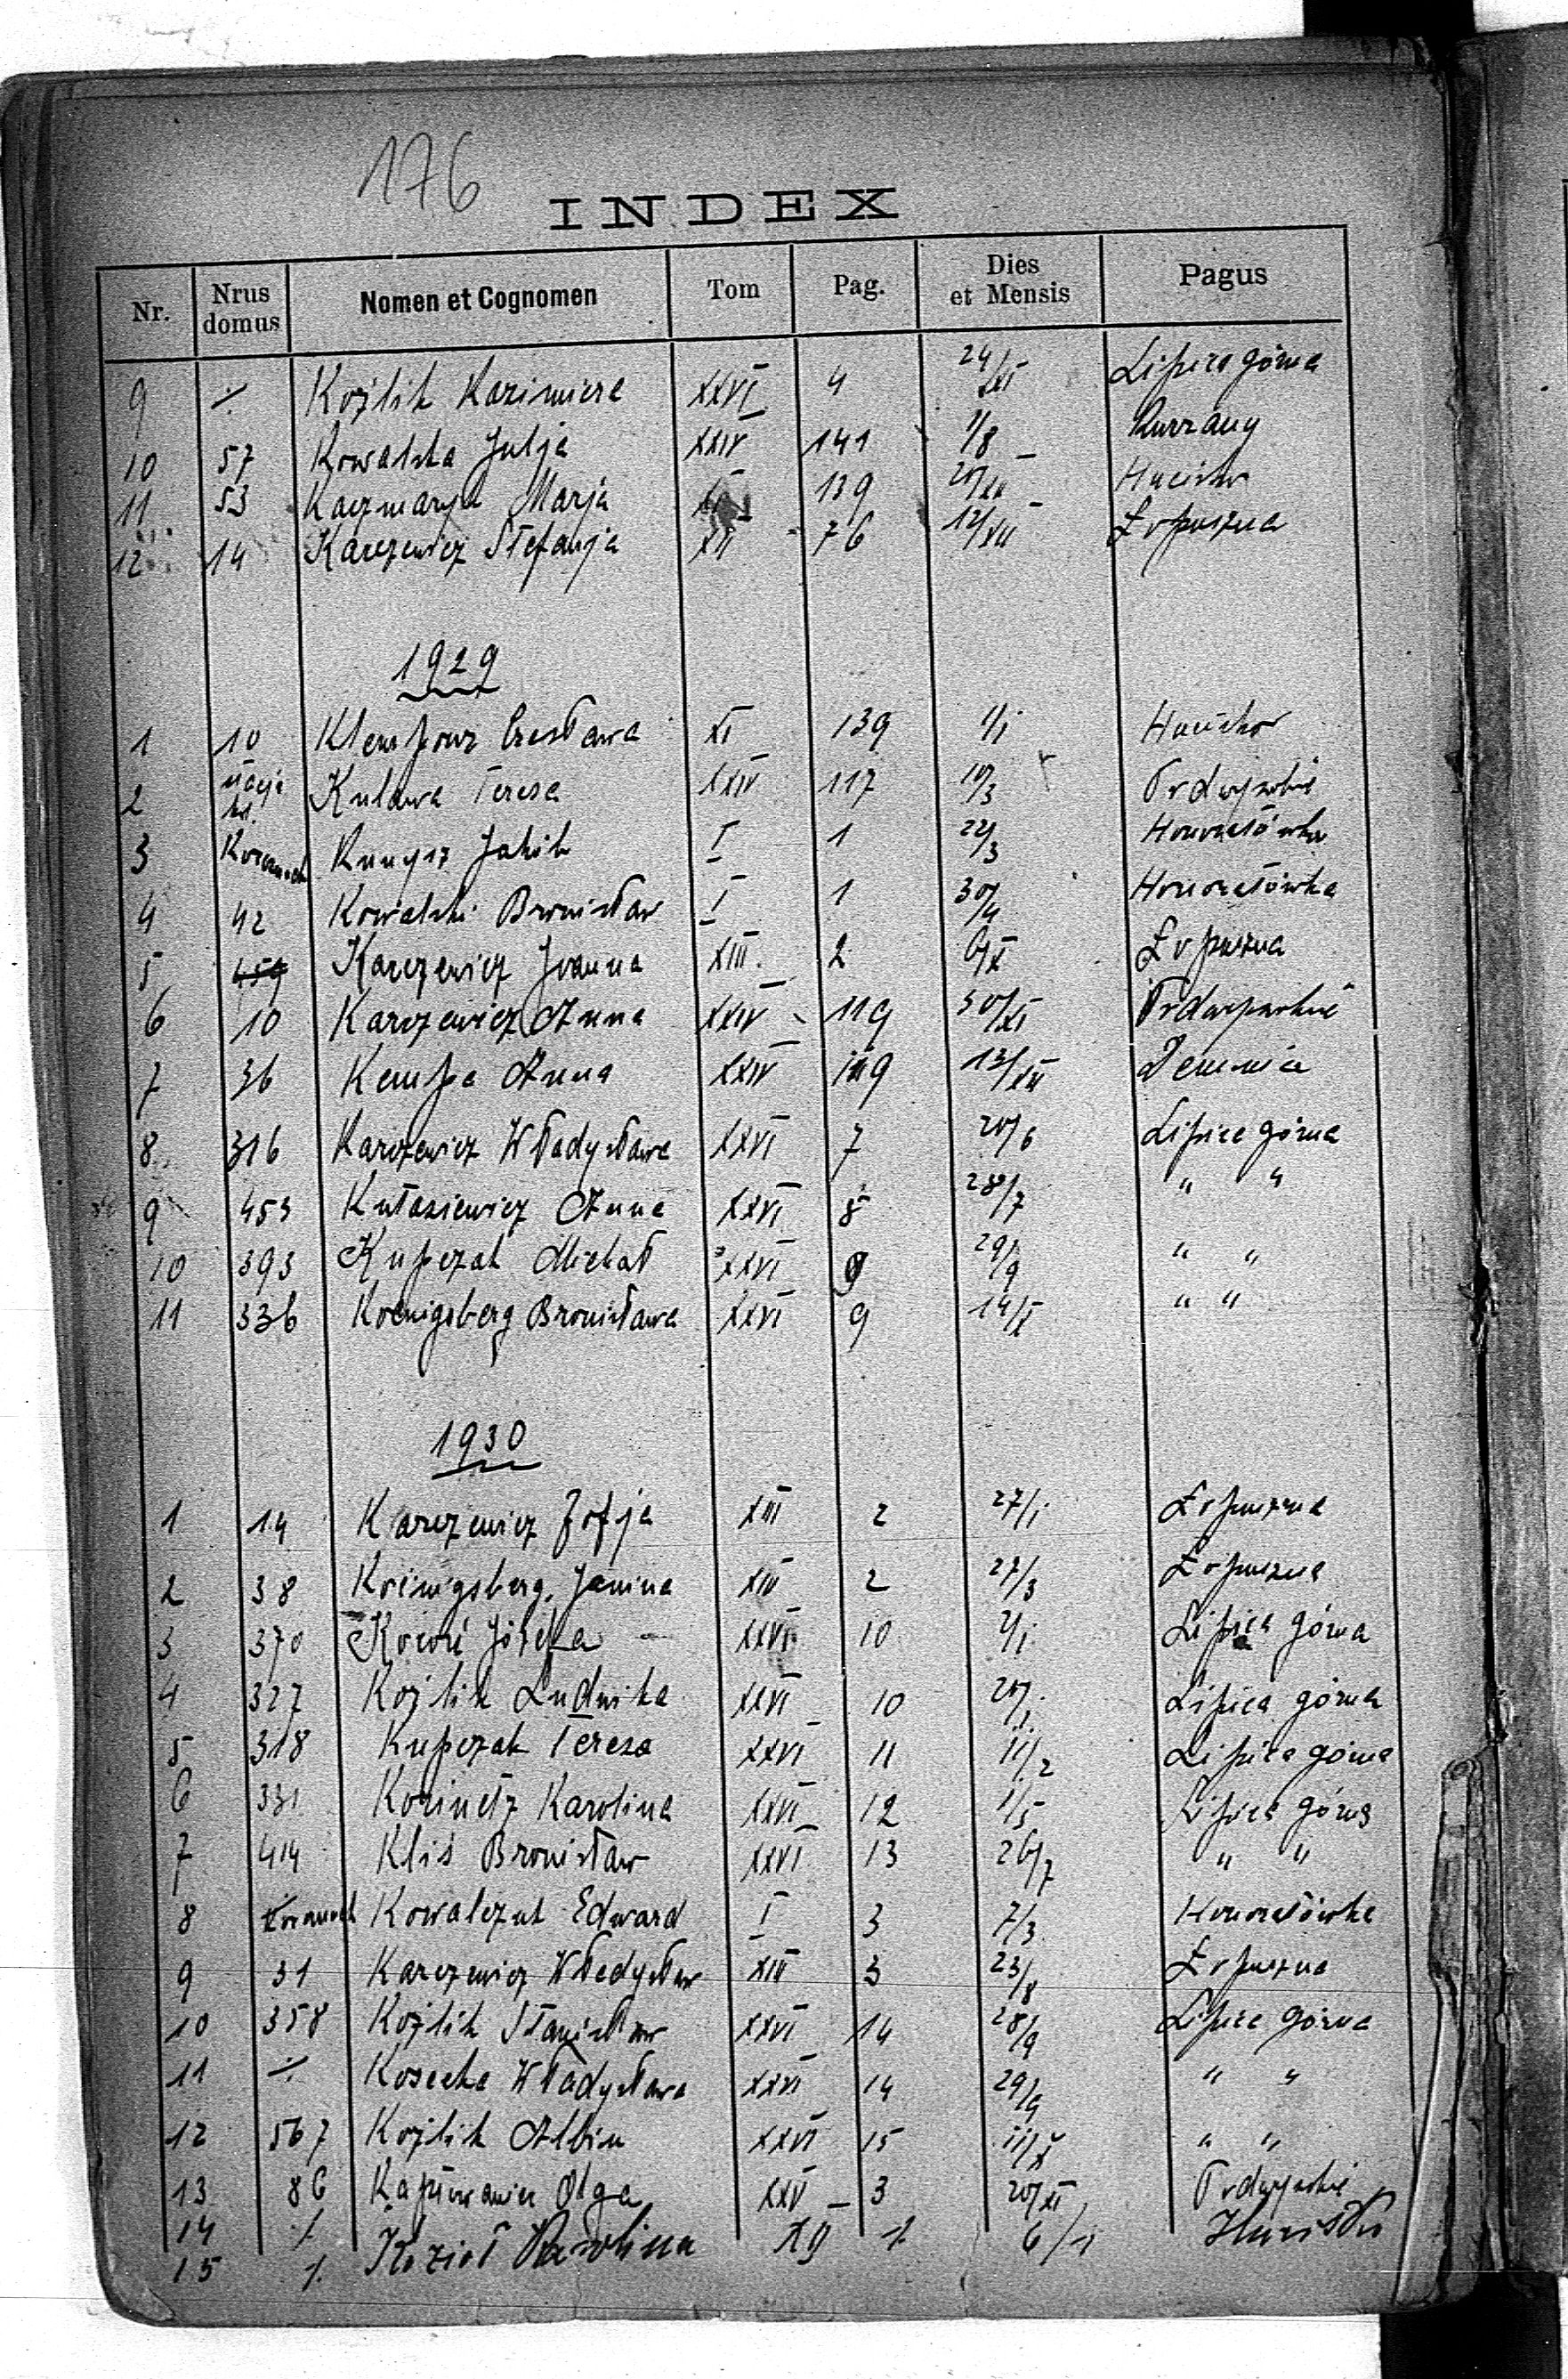 176
INDEX
Nr. Nrus domus Nomen et Cognomen Tom Pag. Dies et Mensis Pagus
9 ·/· Kojlik Kazimiera XXVI 4 24/XI Lipica górna
10 57 Kowalska Julja XXIV 141 1/8 Kurzany
11 53 Kaczmaryk Marja 139 Hucisko
12 14 Karczewicz Stefanja XII 76 12/XII Łopuszna
1929
1 10 Klempouz Czesława XI 139 1/1 Hucisko
2 Kulawa Teresa XXIV 117 10/3 Podwysokie
3 Kunysz Jakób I 1 22/3 Honoratówka
4 42 Kowalski Bronisław I 1 30/4 Honoratówka
5 459 Karczewicz Joanna XIII. 2 6/X Łopuszna
6 10 Karczewicz Anna XXIV 119 30/XI Podwysokie
7 36 Kempa Anna XXIV 119 13/XII Demnia
8 316 Karczewicz Władysława XXVI 7 20/6 Lipica górna
9 453 Kułasiewicz Anna XXVI 8 28/7 " "
10 393 Kupczak Michał XXVI 9 29/9 " "
11 336 Koenigsberg Bronisława XXVI 9 14/X " "
1930
1 14 Karczewicz Zofja XIII 2 27/1 Łopuszna
2 38 Koenigsberg Janina XIII 2 27/3 Łopuszna
3 370 Józefa XXVI 10 Lipica górna
4 327 Kojlik Ludwika XXVI 10 20/1. Lipica górna
5 318 Kupczak Teresa XXVI 11 11/2 Lipica górna
6 331 Korinetz Karolina XXVI 12 1/5 Lipica górna
7 414 Kliś Bronisław XXVI 13 26/7 " "
8 Kowalczuk Edward I 3 7/3 Honoratówka
9 31 Karczewicz Władysław XIII 3 23/8 Łopuszna
10 358 Kojlik Stanisław XXVI 14 28/9 Lipica górna
11 ·/· Kosecka Władysława XXVI 14 29/9 " "
12 567 Kojlik Albin XXVI 15 11/X " "
13 86 Olga XXV 3 20/XI Podwysokie
14 ·/. Kozioł Karolina XII 1 6/1 Hucisko
15 ·/.